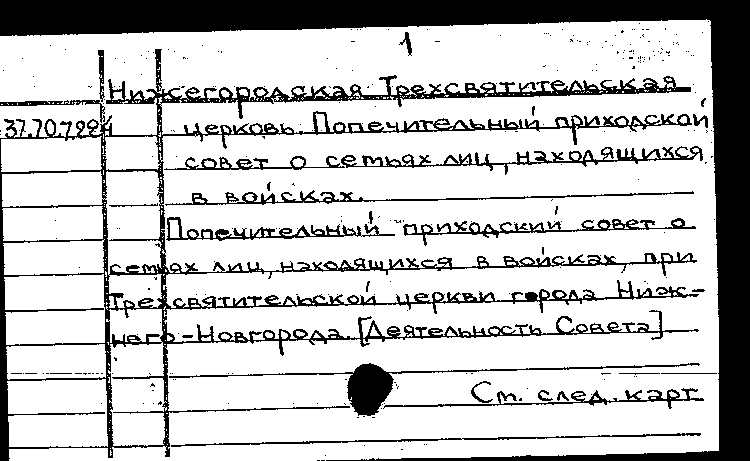 1
Нижегородская Трехсвятительская
37.70.7.224 церковь. Попечительный приходской
совет о семьях лиц, находящихся
в войсках.
Попечительный приходский совет о
семьях лиц, находящихся в войсках, при
Трехсвятительской церкви города Ниж-
наго-Новгорода. [Деятельность Совета].
См. след. карт.